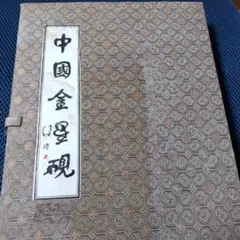 中國金星硯